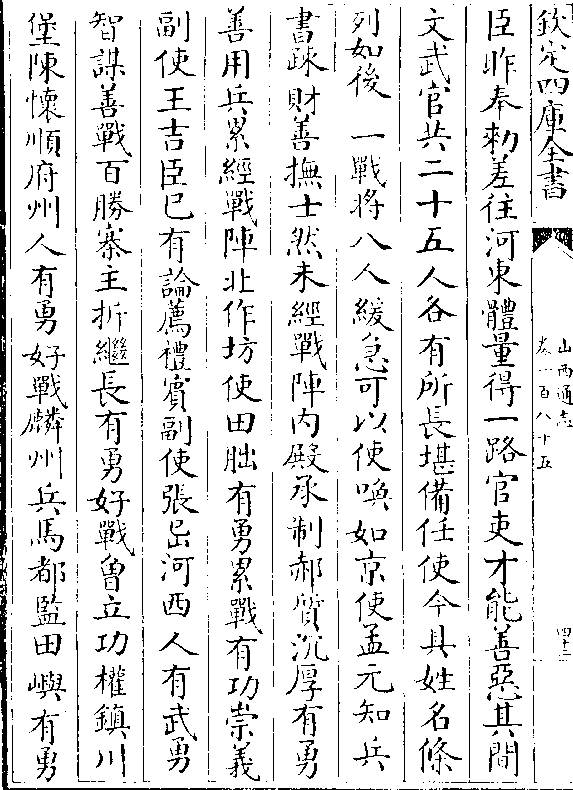 欽定四庫全書
山西通志
卷一百八十五
四十三
臣昨奉勅差往河東體量得一路官吏才能善惡其間
文武官共二十五人各有所長堪備任使今具姓名條
列如後 一戰將八人緩急可以使喚如京使孟元知兵
書疎財善撫士然未經戰陣内殿承制郝質沉厚有勇
善用兵累經戰陣北作坊使田朏有勇累戰有功崇義
副使王吉臣已有論薦禮賓副使張岊河西人有武勇
智謀善戰百勝寨王折繼長有勇好戰曾立功權鎮川
堡陳懷順府州人有勇好戰麟州兵馬都監田嶼有勇